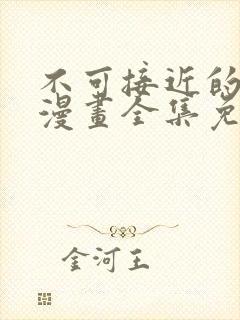 不可接近的
漫畫全集免
金河王